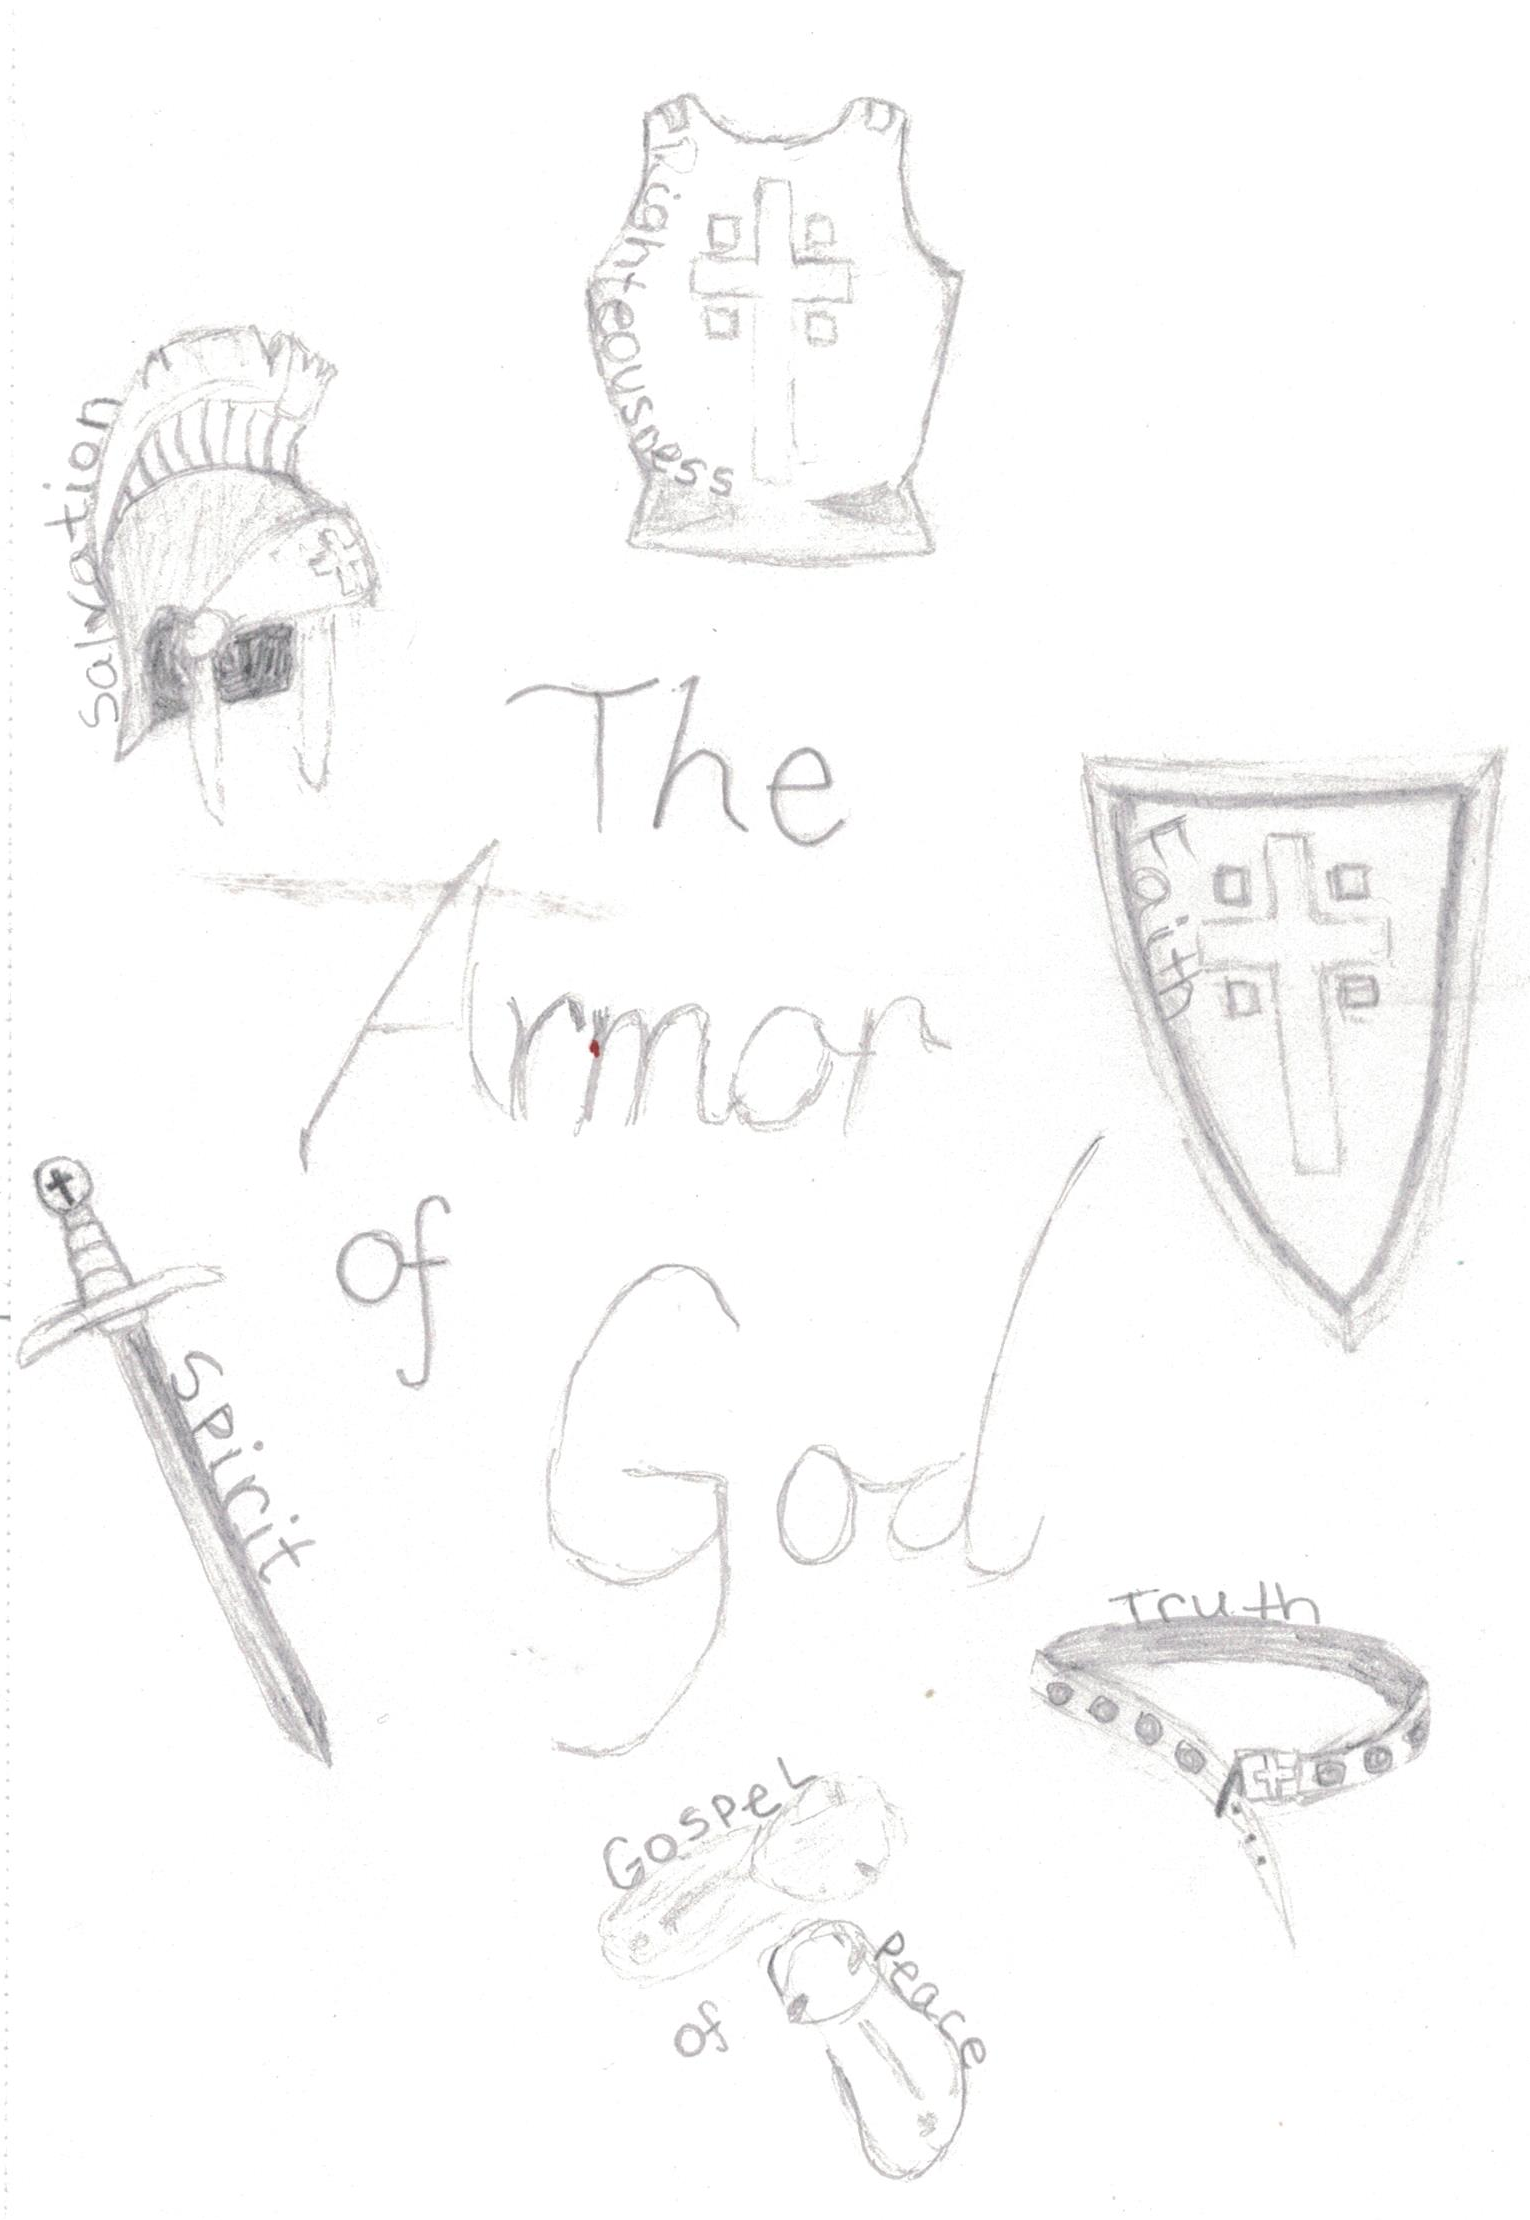 Righteousness
Salvation
The
Armor
of
God
Faith
Spirit
Truth
Gospel
of
Peace